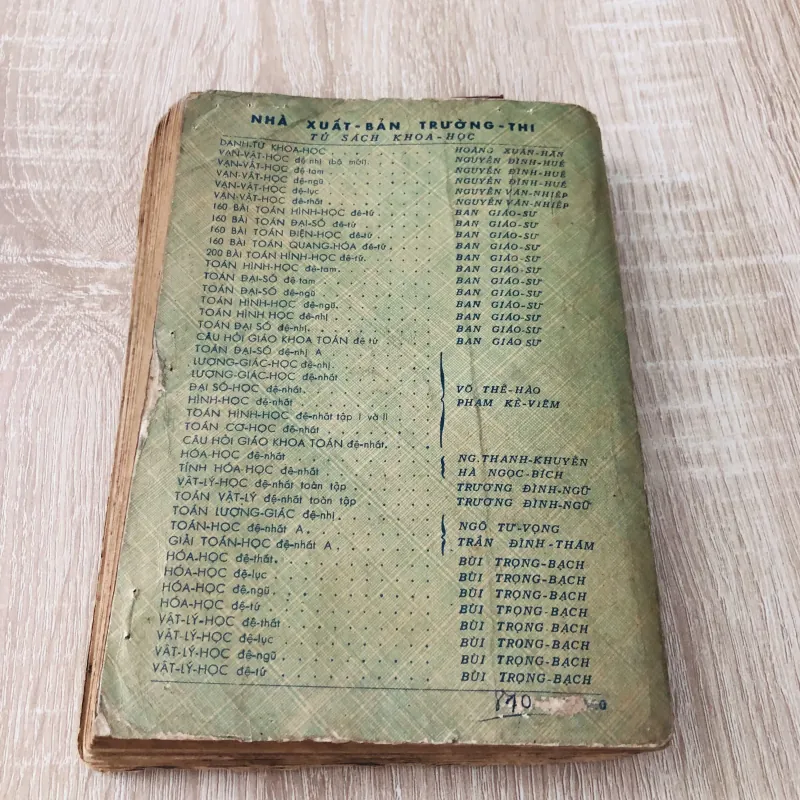 NHÀ XUẤT-BẢN TRƯỜNG-THI
TỦ SÁCH KHOA-HỌC
DANH-TỪ KHOA-HỌC . . . . . HOÀNG XUÂN-HÃN
VẠN-VẬT-HỌC đệ-nhị (bộ mới) . . . . . NGUYỄN ĐÌNH-HUÊ
VẠN-VẬT-HỌC đệ-tam . . . . . NGUYỄN ĐÌNH-HUÊ
VẠN-VẬT-HỌC đệ-ngũ . . . . . NGUYỄN ĐÌNH-HUÊ
VẠN-VẬT-HỌC đệ-lục . . . . . NGUYỄN VĂN-NHIẾP
VẠN-VẬT-HỌC đệ-thất . . . . . NGUYỄN VĂN-NHIẾP
160 BÀI TOÁN HÌNH-HỌC đệ-tứ . . . . . BAN GIÁO-SƯ
160 BÀI TOÁN ĐẠI-SỐ đệ-tứ . . . . . BAN GIÁO-SƯ
160 BÀI TOÁN ĐIỆN-HỌC đệ-tứ . . . . . BAN GIÁO-SƯ
160 BÀI TOÁN QUANG-HÓA đệ-tứ . . . . . BAN GIÁO-SƯ
200 BÀI TOÁN HÌNH-HỌC đệ-tứ . . . . . BAN GIÁO-SƯ
TOÁN HÌNH-HỌC đệ-tam . . . . . BAN GIÁO-SƯ
TOÁN ĐẠI-SỐ đệ-tam . . . . . BAN GIÁO-SƯ
TOÁN ĐẠI-SỐ đệ-ngũ . . . . . BAN GIÁO-SƯ
TOÁN HÌNH-HỌC đệ-ngũ . . . . . BAN GIÁO-SƯ
TOÁN HÌNH HỌC đệ-nhị . . . . . BAN GIÁO-SƯ
TOÁN ĐẠI SỐ đệ-nhị . . . . . BAN GIÁO-SƯ
CÂU HỎI GIÁO KHOA TOÁN đệ tứ . . . . . BAN GIÁO SƯ
TOÁN ĐẠI-SỐ đệ-nhị A . . . . .
LƯỢNG-GIÁC-HỌC đệ-nhị . . . . .
LƯỢNG-GIÁC-HỌC đệ-nhất . . . . .
ĐẠI SỐ-HỌC đệ-nhất . . . . . VÕ THẾ-HÀO
HÌNH-HỌC đệ-nhất . . . . . PHẠM KẾ-VIÊM
TOÁN HÌNH-HỌC đệ-nhất tập I và II
TOÁN CƠ-HỌC đệ-nhất . . . . .
CÂU HỎI GIÁO KHOA TOÁN đệ-nhất . . . . .
HÓA-HỌC đệ-nhất . . . . . NG. THANH-KHUYẾN
TÍNH HÓA-HỌC đệ-nhất . . . . . HÀ NGỌC-BÍCH
VẬT-LÝ-HỌC đệ-nhất toàn tập . . . . . TRƯƠNG ĐÌNH-NGỮ
TOÁN VẬT-LÝ đệ-nhất toàn tập . . . . . TRƯƠNG ĐÌNH-NGỮ
TOÁN LƯỢNG-GIÁC đệ-nhị . . . . .
TOÁN-HỌC đệ-nhất A . . . . . NGÔ TƯ-VỌNG
GIẢI TOÁN-HỌC đệ-nhất A . . . . . TRẦN ĐÌNH-THÁM
HÓA-HỌC đệ-thất . . . . . BÙI TRỌNG-BẠCH
HÓA-HỌC đệ-lục . . . . . BÙI TRỌNG-BẠCH
HÓA-HỌC đệ-ngũ . . . . . BÙI TRỌNG-BẠCH
HÓA-HỌC đệ-tứ . . . . . BÙI TRỌNG-BẠCH
VẬT-LÝ-HỌC đệ-thất . . . . . BÙI TRỌNG BẠCH
VẬT-LÝ-HỌC đệ-lục . . . . . BÙI TRỌNG-BẠCH
VẬT-LÝ-HỌC đệ-ngũ . . . . . BÙI TRỌNG-BẠCH
VẬT-LÝ-HỌC đệ-tứ . . . . . BÙI TRỌNG-BẠCH